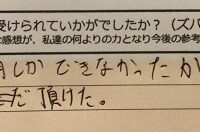 受けられていかがでしたか？（ズバ
な感想が、私達の何よりの力となり今後の参考
しか できなかったか
だ 頂けた。